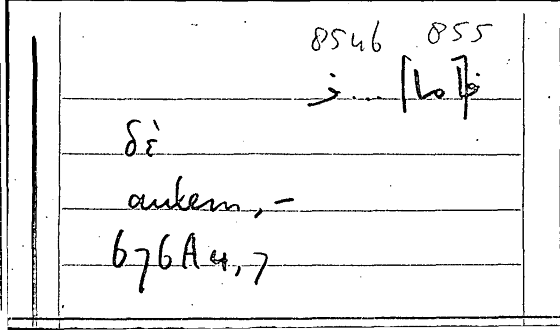 8546 855
δὲ
autem, –
676A4,7